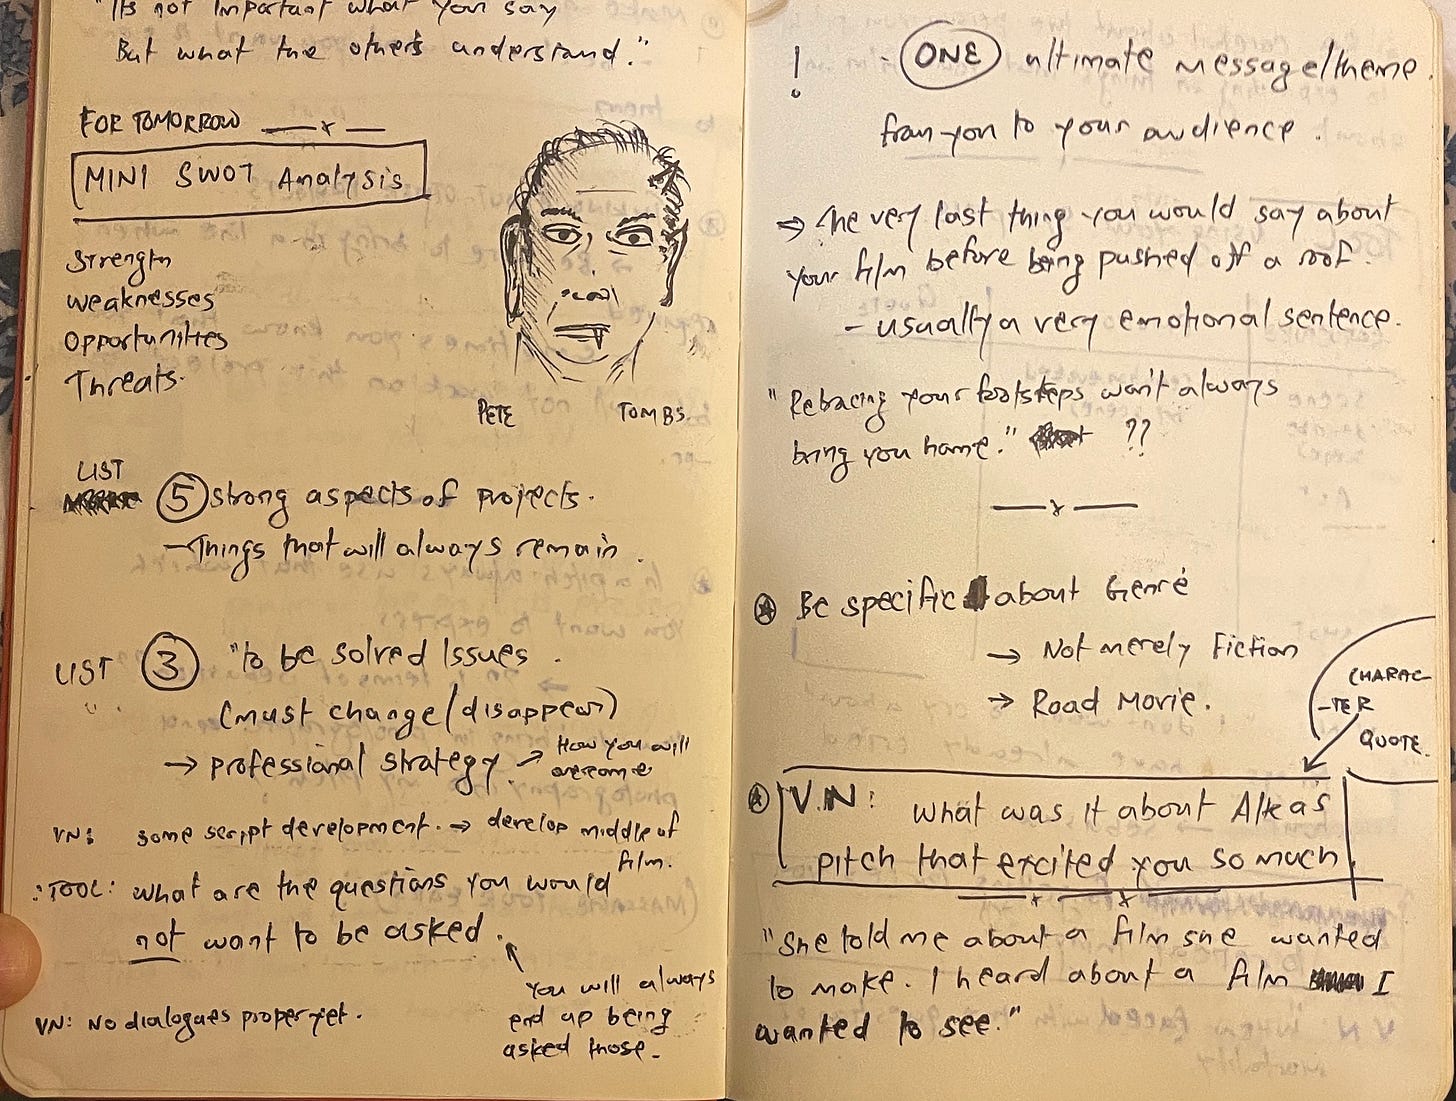 "Its not important what you say
But what the others understand."
FOR TOMORROW
MINI SWOT Analysis
Strength
Weaknesses
Opportunities
Threats.
PETE TOMBS.
LIST
⑤ strong aspects of projects.
- Things that will always remain.
LIST ③ "to be solved Issues.
(must change/disappear)
→ professional strategy. → How you will
overcome
VN: some script development. → develop middle of
film.
:TOOL: what are the questions you would
not want to be asked.
You will always
end up being
asked those.
VN: No dialogues proper yet.
! - ONE ultimate message/theme.
from you to your audience.
→ The very last thing you would say about
your film before being pushed off a roof.
- usually a very emotional sentence.
"Retracing your footsteps won't always
bring you home." ??
Be specific about Genre
→ Not merely Fiction
→ Road Movie.
CHARAC-
-TER
QUOTE.
V.N: What was it about Alkas
pitch that excited you so much
"She told me about a film she wanted
to make. I heard about a film I
wanted to see."